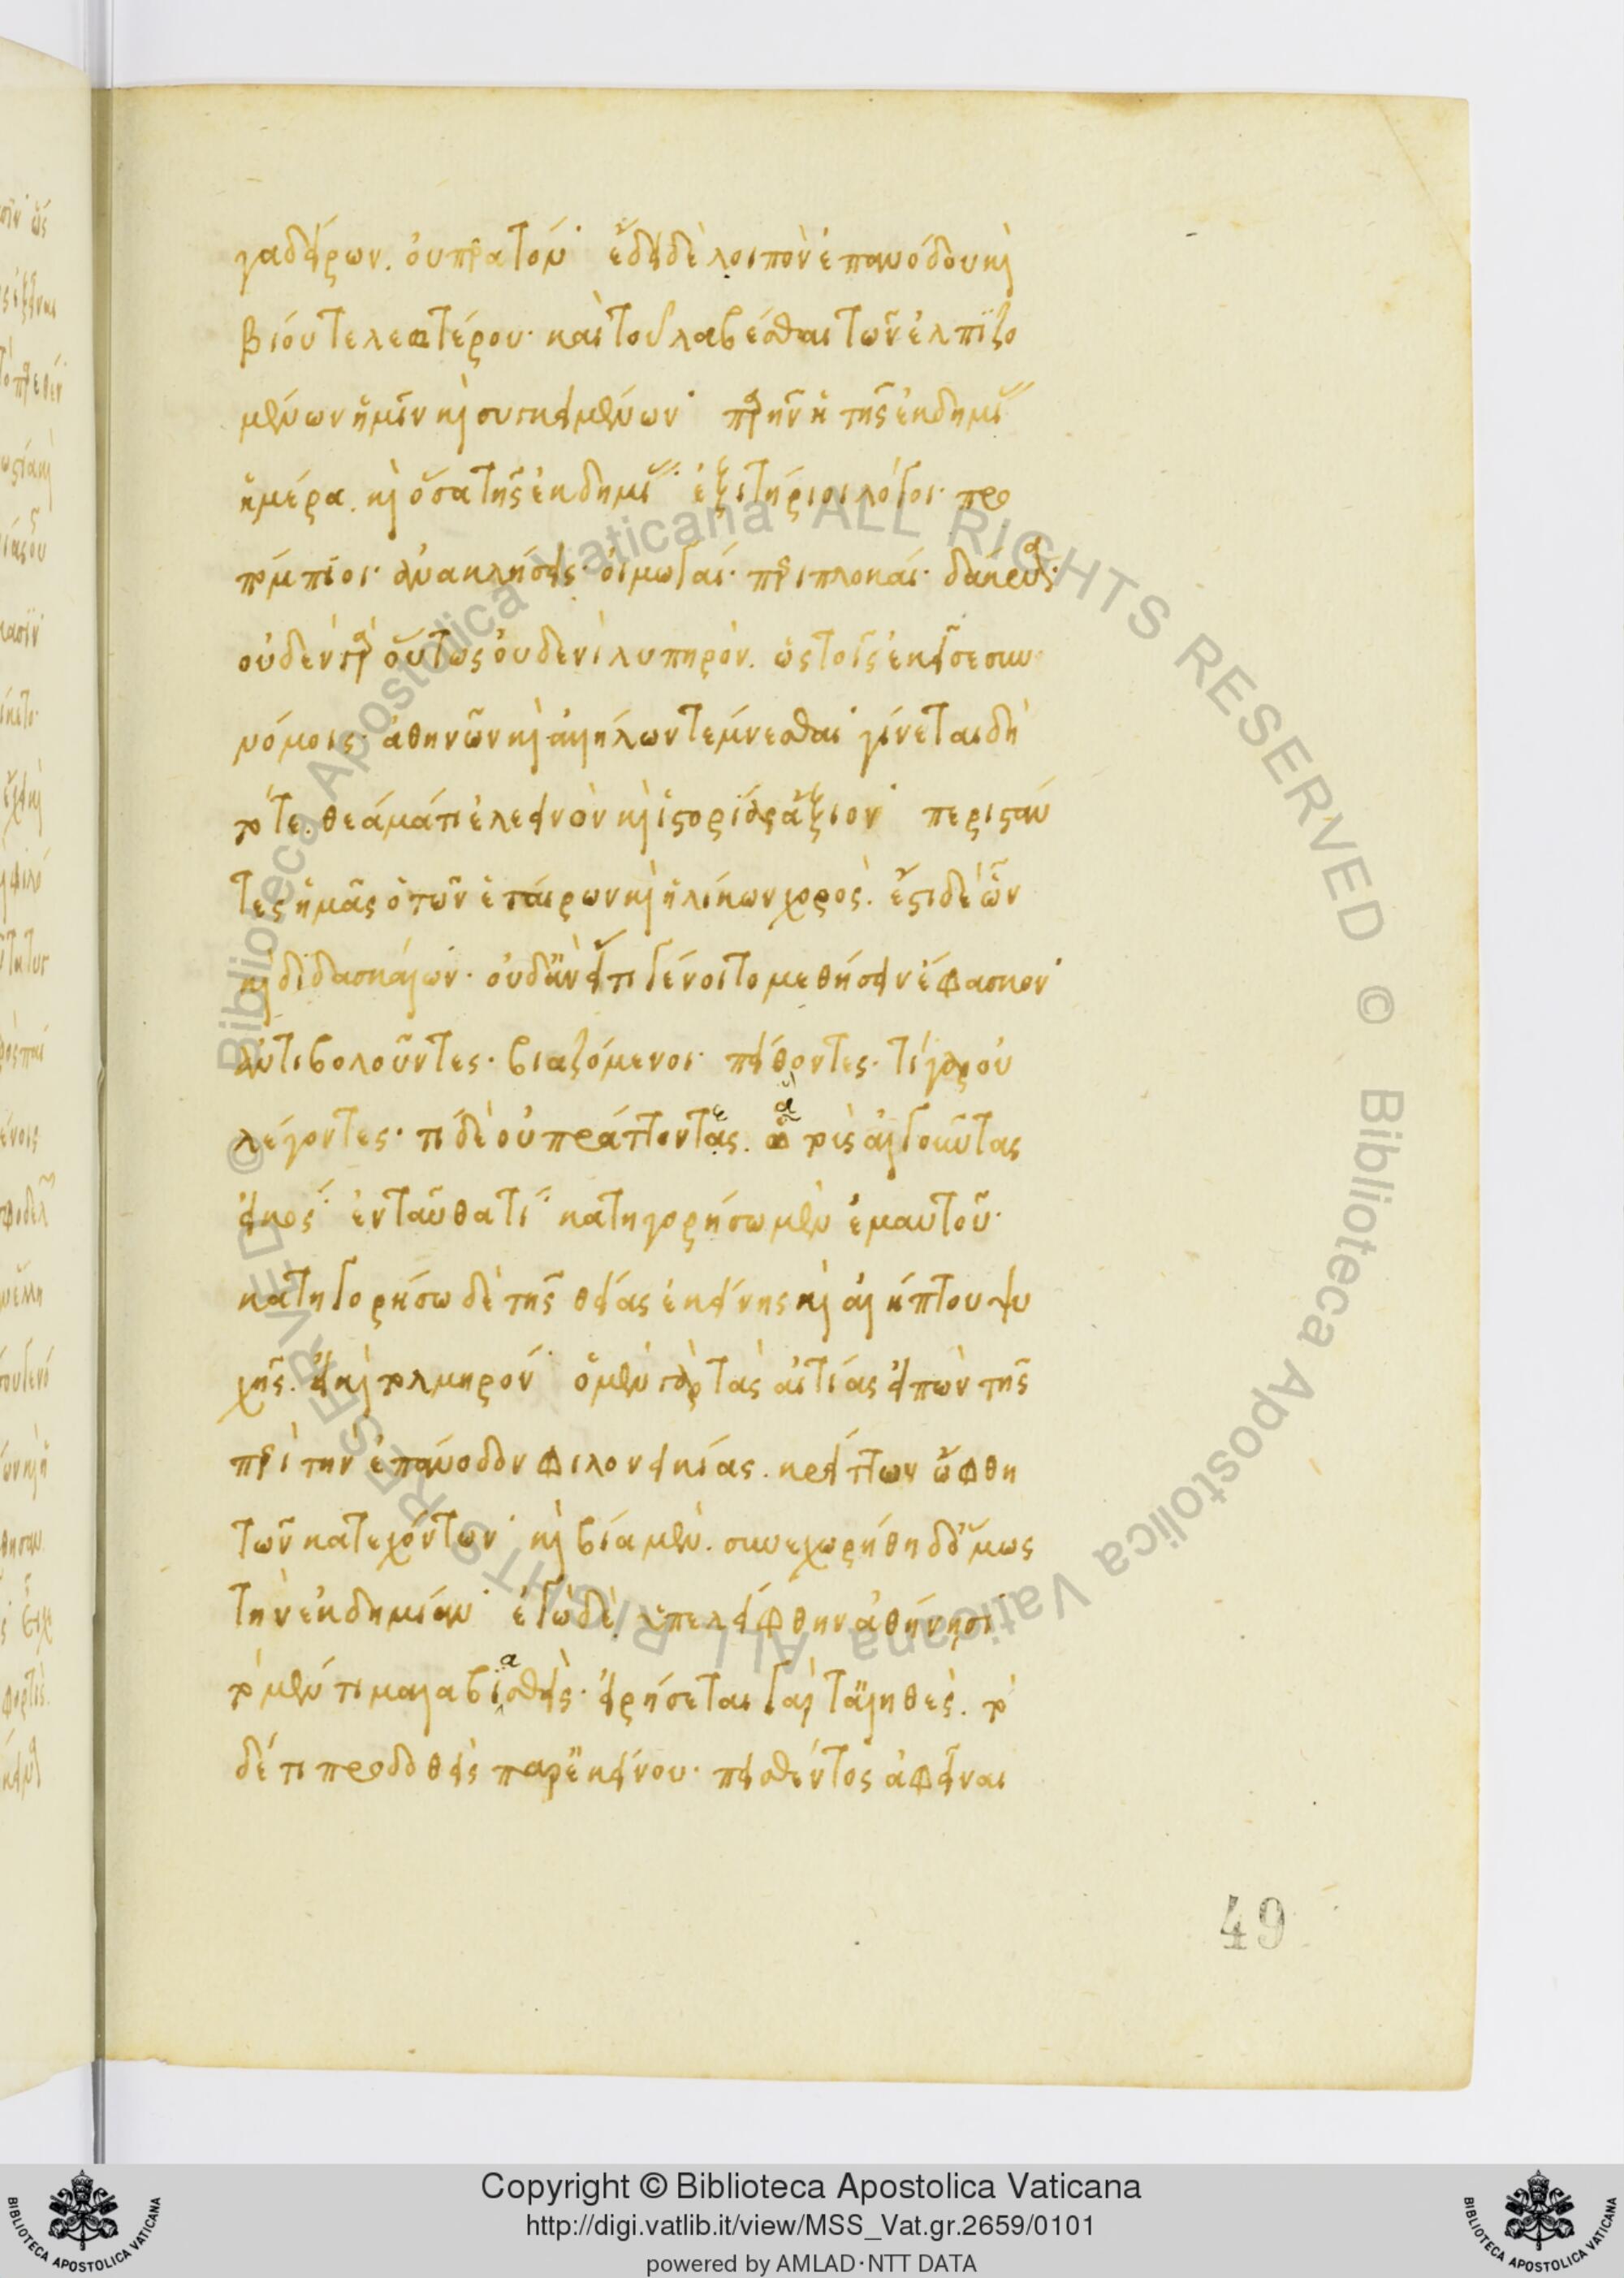 γαδείρων. ου πρατόν· ἔδει δὲ λοιπὸν ἐπανόδου καὶ
βίου τελεωτέρου· καὶ τοῦ λαβέσθαι τῶν ἐλπιζο
μένων ἡμῖν καὶ συγκειμένων· παρῆν ἡ τῆς ἐκδημίας
ἡμέρα. καὶ ὅσα τῆς ἐκδημίας· ἐξιτήριοι λόγοι· προ
πόμπιοι· ἀνακλήσεις· οἰμωγαί· περιπλοκαί· δάκρυα·
οὐδὲν γὰρ οὕτως οὐδενὶ λυπηρόν. ὡς τοῖς ἐκεῖσε συν
νόμοις· ἀθηνῶν καὶ ἀλλήλων τέμνεσθαι· γίνεται δὴ
τότε. θέαμά τι ἐλεεινὸν καὶ ἱστορίας ἄξιον· περιστάν
τες ἡμᾶς ὁ τῶν ἑταίρων καὶ ἡλίκων χορός. ἔστι δὲ ὧν
καὶ διδασκάλων· οὐδ' ἂν εἴ τι γένοιτο μεθήσειν ἔφασκον·
ἀντιβολοῦντες· βιαζόμενοι· πείθοντες· τί γὰρ οὐ
λέγοντες· τί δὲ οὐ πράττοντες. ἃ τοὺς ἀλγοῦντας
εἰκός· ἐνταῦθά τι κατηγορήσω μὲν ἐμαυτοῦ·
κατηγορήσω δὲ τῆς θείας ἐκείνης καὶ ἀλήπτου ψυ
χῆς. εἰ καὶ τολμηρόν· ὁ μὲν γὰρ τὰς αἰτίας εἰπὼν τῆς
περὶ τὴν ἐπάνοδον φιλονεικίας. κρείττων ὤφθη
τῶν κατεχόντων· καὶ βίᾳ μέν. συνεχωρήθη δ' ὅμως
τὴν ἐκδημίαν· ἐγὼ δὲ ὑπελείφθην ἀθήνησι·
τὸ μέν τι μαλακισθείς· εἰρήσεται γὰρ τἀληθές. τὸ
δέ τι προδοθεὶς παρ' ἐκείνου· πεισθέντος ἀφεῖναι
49
Copyright © Biblioteca Apostolica Vaticana
http://digi.vatlib.it/view/MSS_Vat.gr.2659/0101
powered by AMLAD·NTT DATA